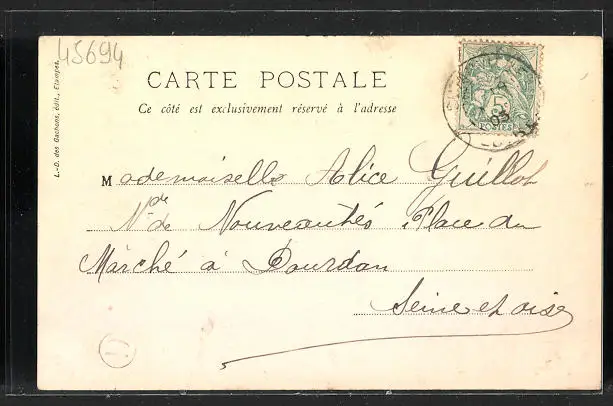 45694
CARTE POSTALE
Ce côté est exclusivement réservé à l'adresse
L.-D. des Gachons, édit., Etampes.
5c
POSTES
Mademoiselle Alice Guillot
Mde de Nouveautés Place du
Marché à Dourdan
Seine et oise